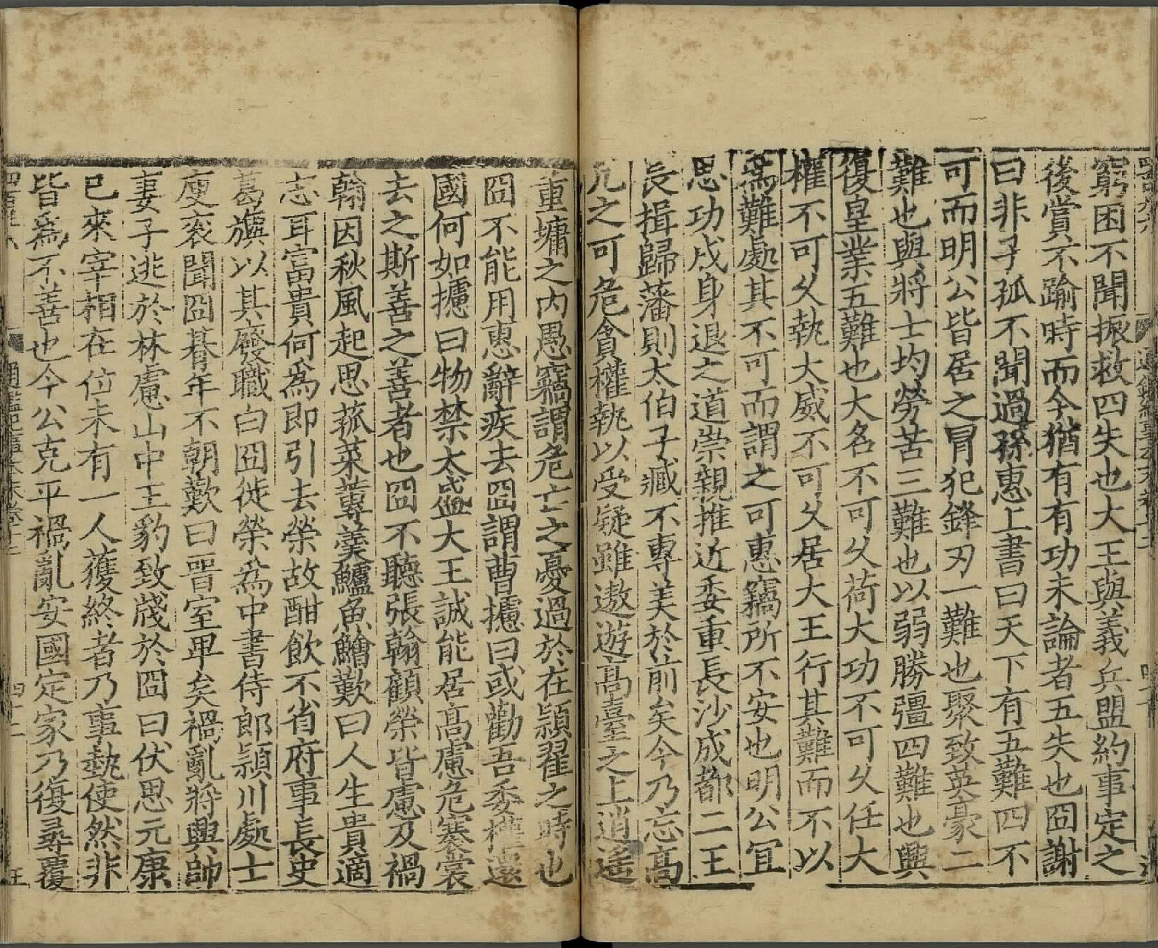 窮困不聞振救四失也大王與義兵盟約事定之
後賞不踰時而今猶有有功未論者五失也冏謝
曰非子孤不聞過孫惠上書曰天下有五難四不
可而明公皆居之冐犯鋒刃一難也聚致英豪二
難也與將士均勞苦三難也以弱勝彊四難也興
復皇業五難也大名不可乆荷大功不可乆任大
權不可乆執大威不可乆居大王行其難而不以
爲難處其不可而謂之可惠竊所不安也明公宜
思功成身退之道崇親推近委重長沙成都二王
長揖歸藩則太伯子臧不專美於前矣今乃忘髙
亢之可危貪權埶以受疑雖遨遊髙臺之上逍遥
重墉之内愚竊謂危亡之憂過於在潁翟之時也
冏不能用惠辭疾去冏謂曹攄曰或勸吾委權還
國何如攄曰物禁太盛大王誠能居髙慮危褰裳
去之斯善之善者也冏不聽張翰顧榮皆慮及禍
翰因秋風起思菰菜蓴羹鱸魚鱠歎曰人生貴適
志耳富貴何爲即引去榮故酣飲不省府事長史
葛旟以其廢職白冏徙榮爲中書侍郎潁川處士
庾衮聞冏朞年不朝歎曰晋室卑矣禍亂將興帥
妻子逃於林慮山中王豹致牋於冏曰伏思元康
已來宰相在位未有一人獲終者乃事埶使然非
皆爲不善也今公克平禍亂安國定家乃復尋覆